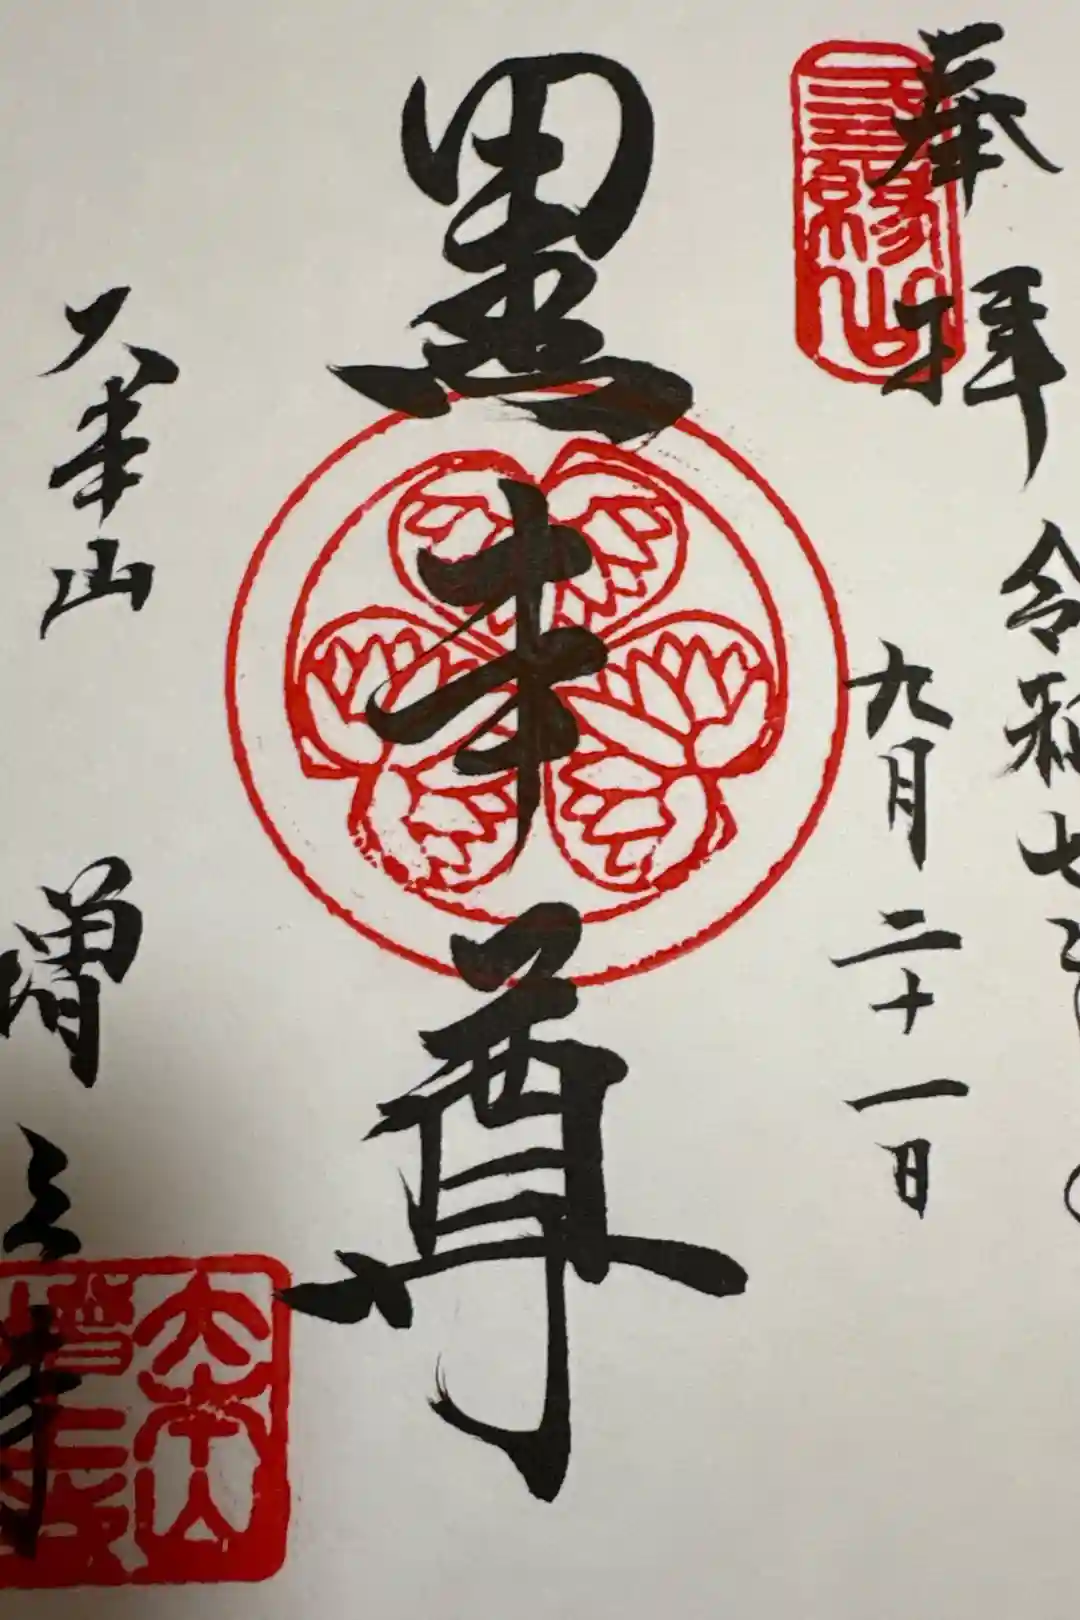 奉拝
三縁山
令和七年
九月二十一日
黒本尊
大本山
増上寺
大本山
増上寺